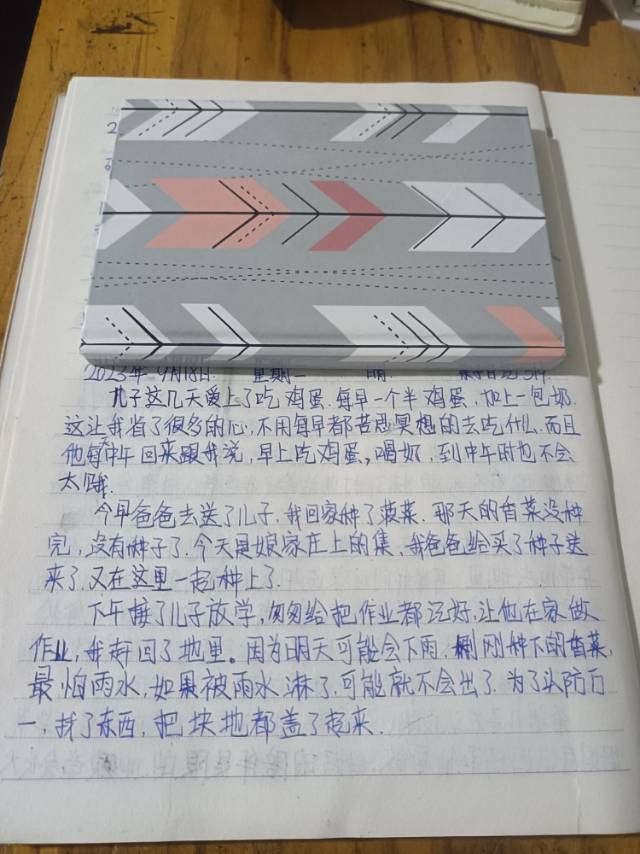 2023年9月18日 星期一 晴
儿子这几天爱上了吃鸡蛋.每早一个半鸡蛋,加上一包奶.
这让我省了很多的心,不用每早都苦思冥想的去吃什么.而且
他每中午回来跟我说,早上吃鸡蛋,喝奶,到中午时也不会
太饿.
今早爸爸去送了儿子,我回家种了菠菜.那天的香菜没种
完,没有种子了.今天是娘家庄上的集,我爸爸给买了种子送
来了.又在这里一起种上了.
下午接了儿子放学,匆匆给把作业都记好,让他在家做
作业,我赶回了地里。因为明天可能会下雨.刚种下的香菜,
最怕雨水,如果被雨水淋了,可能就不会出了.为了以防万
一,找了东西,把块地都盖了起来.